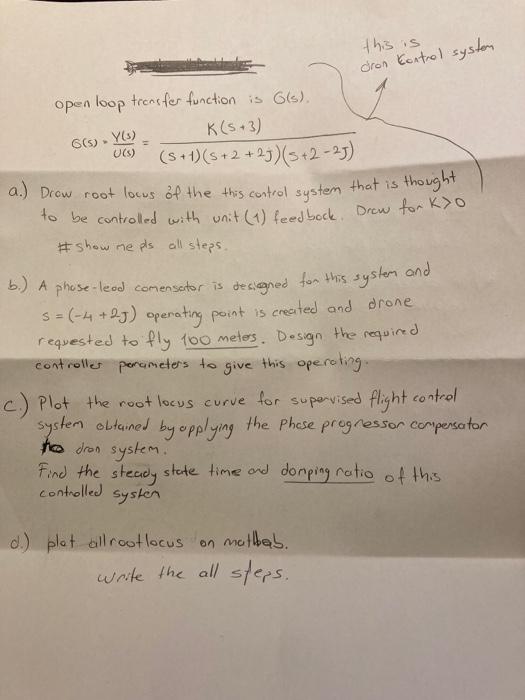 this is
dron control system
open loop transfer function is G(s).
G(s) = Y(s)/U(s) = K(s+3)/((s+1)(s+2+2J)(s+2-2J))
a.) Draw root locus of the this control system that is thought
to be controlled with unit (1) feedback. Draw for K>0
# show me pls all steps.
b.) A phase-lead comensator is designed for this system and
s = (-4+2J) operating point is created and drone
requested to fly 100 meters. Design the required
controller parameters to give this operating.
c.) Plot the root locus curve for supervised flight control
system obtained by applying the Phase progressor compensator
to dron system.
Find the steady state time and damping ratio of this
controlled system
d.) plot all root locus on matlab.
write the all steps.